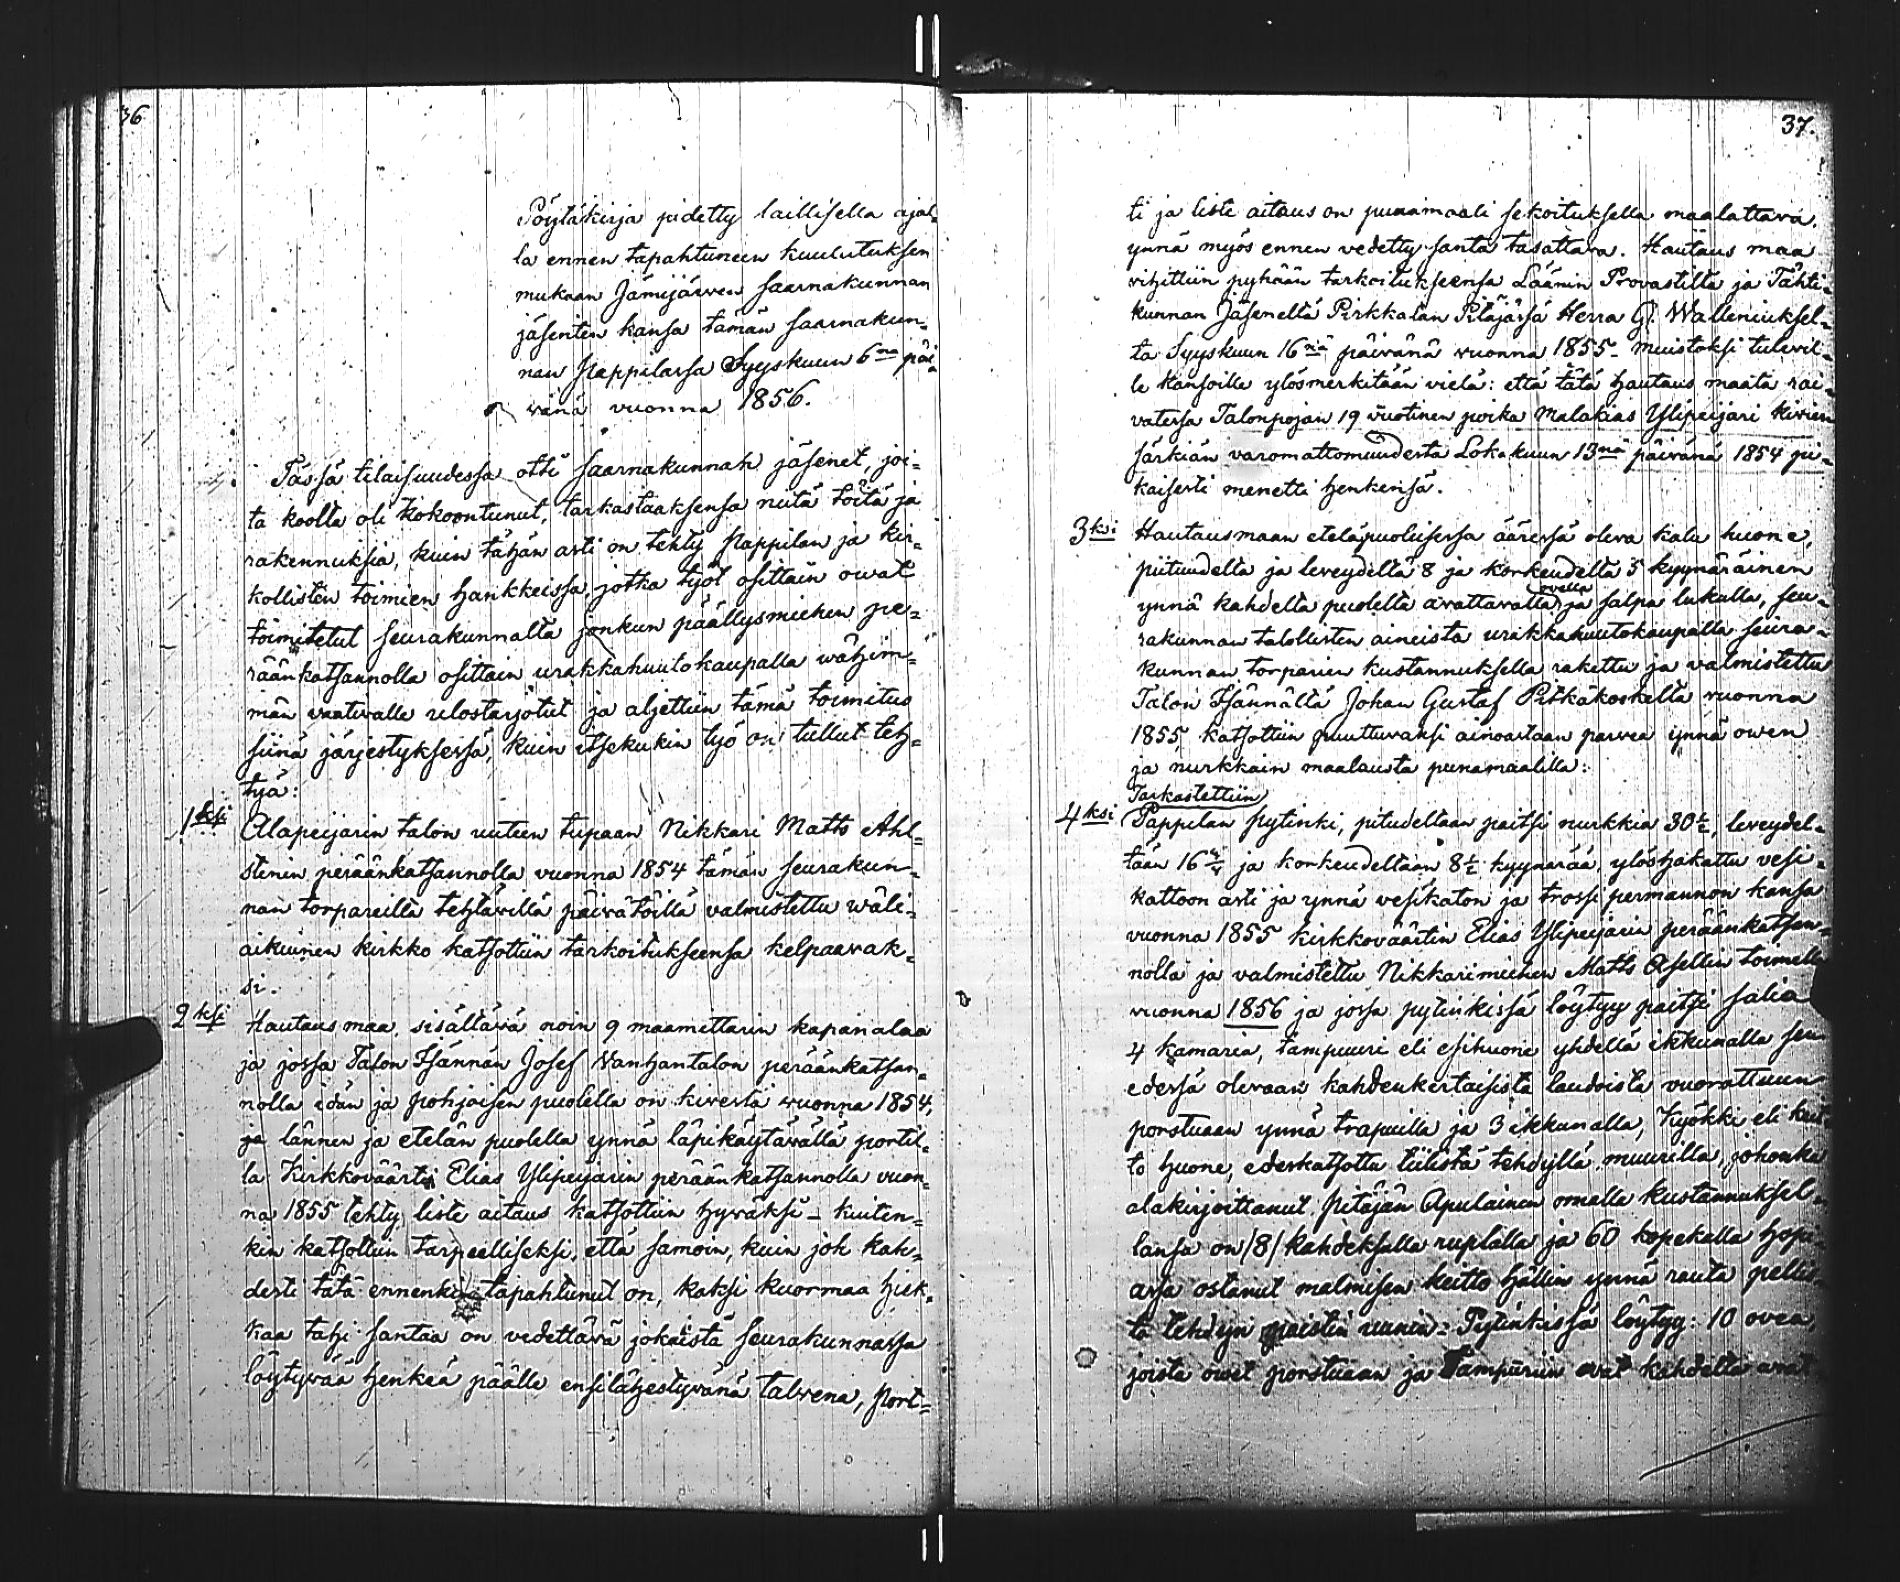 36
Pöytäkirja pidetty laillisella ajal=
la ennen tapahtuneen kuulutuksen
mukaan Jämijärven Saarnakunnan
jäsenten kansa tämän saarnakun=
nan Pappilassa Syyskuun 6na päi=
vänä vuonna 1856.
Tässä tilaisuudessa otti saarnakunnan jäsenet, joi=
ta koolla oli kokoontunut, tarkastaaksensa niitä töitä ja
rakennuksia, kuin tähän asti on tehty Pappilan ja kir=
kollisten toimien hankkeissa, jotka työt osittain owat
toimitetut seurakunnalta jonkun päällysmiehen pe=
räänkatsannolla osittain urakkahuutokaupalla wähim=
män vaativalle ulostarjotut ja aljettiin tämä toimitus
siinä järjestyksessä, kuin itsekukin työ on tullut teh=
tyä:
1ksi Alapeijarin talon uuteen tupaan Nikkari Matts Ahl=
stenin peräänkatsannolla vuonna 1854 tämän seurakun=
nan torpareilla tehtävillä päivätöillä valmistettu wäli=
aikuinen kirkko katsottiin tarkoitukseensa kelpaavak=
si.
2ksi Hautausmaa, sisältävä noin 9 maamittarin kapanalaa
ja jossa Talon Isännän Josef Vanhantalon peräänkatsan=
nolla idän ja pohjaisen puolella on kivestä vuonna 1854,
ja lännen ja etelän puolella ynnä läpikäytävällä portil=
la Kirkkoväärti Elias Ylipeijarin peräänkatsannolla vuon=
na 1855 tehty liste aitaus katsottiin hyväksi – kuiten=
kin katsottiin tarpeelliseksi, että samoin, kuin joh kah=
desti tätä ennenki tapahtunut on, kaksi kuormaa hiek=
kaa tahi santaa on vedettävä jokaista seurakunnassa
löytyvää henkeä päälle ensilähestyvänä talvena, port=
37.
ti ja liste aitaus on punamaali sekoituksella maalattava.
ynnä myös ennen vedetty santa tasattava. Hautaus maa
vihittiin pyhään tarkoitukseensa Läänin Provastilta ja Tähti=
kunnan Jäseneltä Pirkkalan Pitäjässä Herra G. Walleniuksel=
ta Syyskuun 16nä päivänä vuonna 1855 – muistoksi tulevil=
le kansoille ylösmerkitään vielä: että tätä hautaus maata rai=
vatessa Talonpojan 19 vuotinen poika Malakias Ylipeijari kivien
särkiän varomattomuudesta Lokakuun 13nä päivänä 1854 pii=
kaisesti menetti henkensä.
3ksi Hautausmaan eteläpuolisessa ääressä oleva kalu huone,
piituudelta ja leveydeltä 8 ja korkeudelta 5 kyynäräinen
ynnä kahdelta puolelta avattavalla ovella ja salpa lukulla, seu=
rakunnan talollisten aineista urakkahuutokaupalla seura=
kunnan torparien kustannuksella rakettu ja valmistettu
Talon Isännältä Johan Gustaf Pitkäkoskelta vuonna
1855, katsottiin puuttuvaksi ainoastaan parvea ynnä owen
ja nurkkain maalausta punamaalilla:
Tarkastettiin
4ksi Pappilan pytinki, pitudeltaan paitsi nurkkia 30½, leveydel=
tään 16 ja korkeudeltaan 8½ kyynärää, ylöshakattu vesi=
kattoon asti ja ynnä vesikaton ja trossi permannon kansa
vuonna 1855 kirkkoväärtin Elias Ylipeijarin peräänkatsan=
nolla ja valmistettu Nikkarimiehen Matts Asellin toimella
vuonna 1856 ja jossa pytinkissä löytyy paitsi salia
4 kamaria, tampuuri eli esihuone yhdellä ikkunalla sen
edessä olevaan kahdenkertaisista laudoista vuorattuun
porstuaan ynnä trapuilla ja 3 ikkunalla, Kyökki eli keit=
to huone, edeskatsottu tiilistä tehdyllä muurilla, johonka
alakirjoittanut Pitäjän Apulainen omalla kustannuksel=
lansa on /8/ kahdeksalla ruplalla ja 60 kopekalla hope
assa ostanut malmisen keitto hällin ynnä rauta pellis=
tä tehdyn paistin uunin: Pytinkissä löytyy: 10 ovea,
joista owet porstuaan ja Tampuriin ovat kahdelta avat